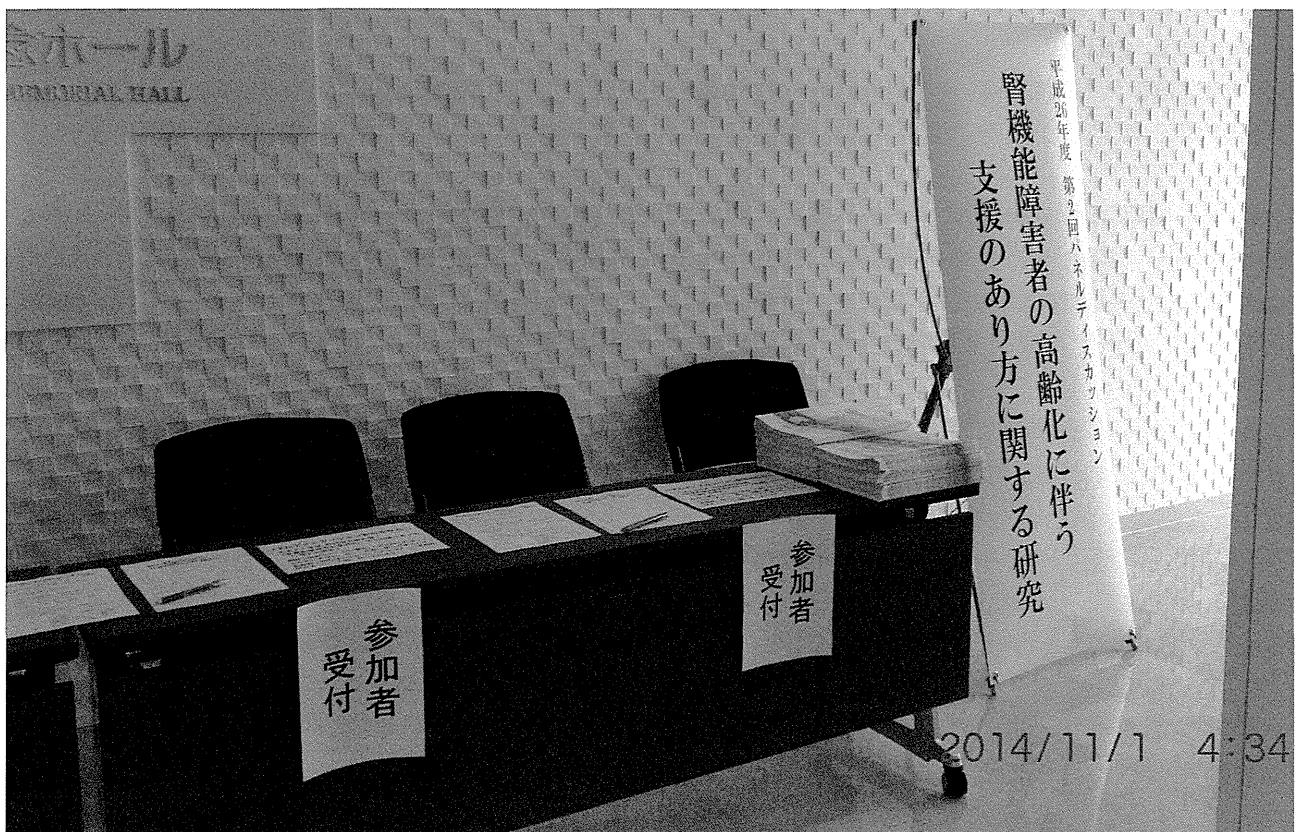 ホール
MEMORIAL HALL
平成26年度 第2回パネルディスカッション
腎機能障害者の高齢化に伴う
支援のあり方に関する研究
参加者
受付
参加者
受付
2014/11/1 4:34